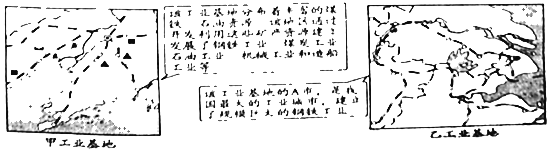 该工业基地分布着丰富的煤
铁 石油资源 该地区通过
开发利用这些矿产资源建立
发展了钢铁工业 煤炭工业
石油工业 机械工业和造船
工业等
该工业基地的A市，是我
国最大的工业城市，建立
了规模巨大的钢铁工业
甲工业基地
乙工业基地